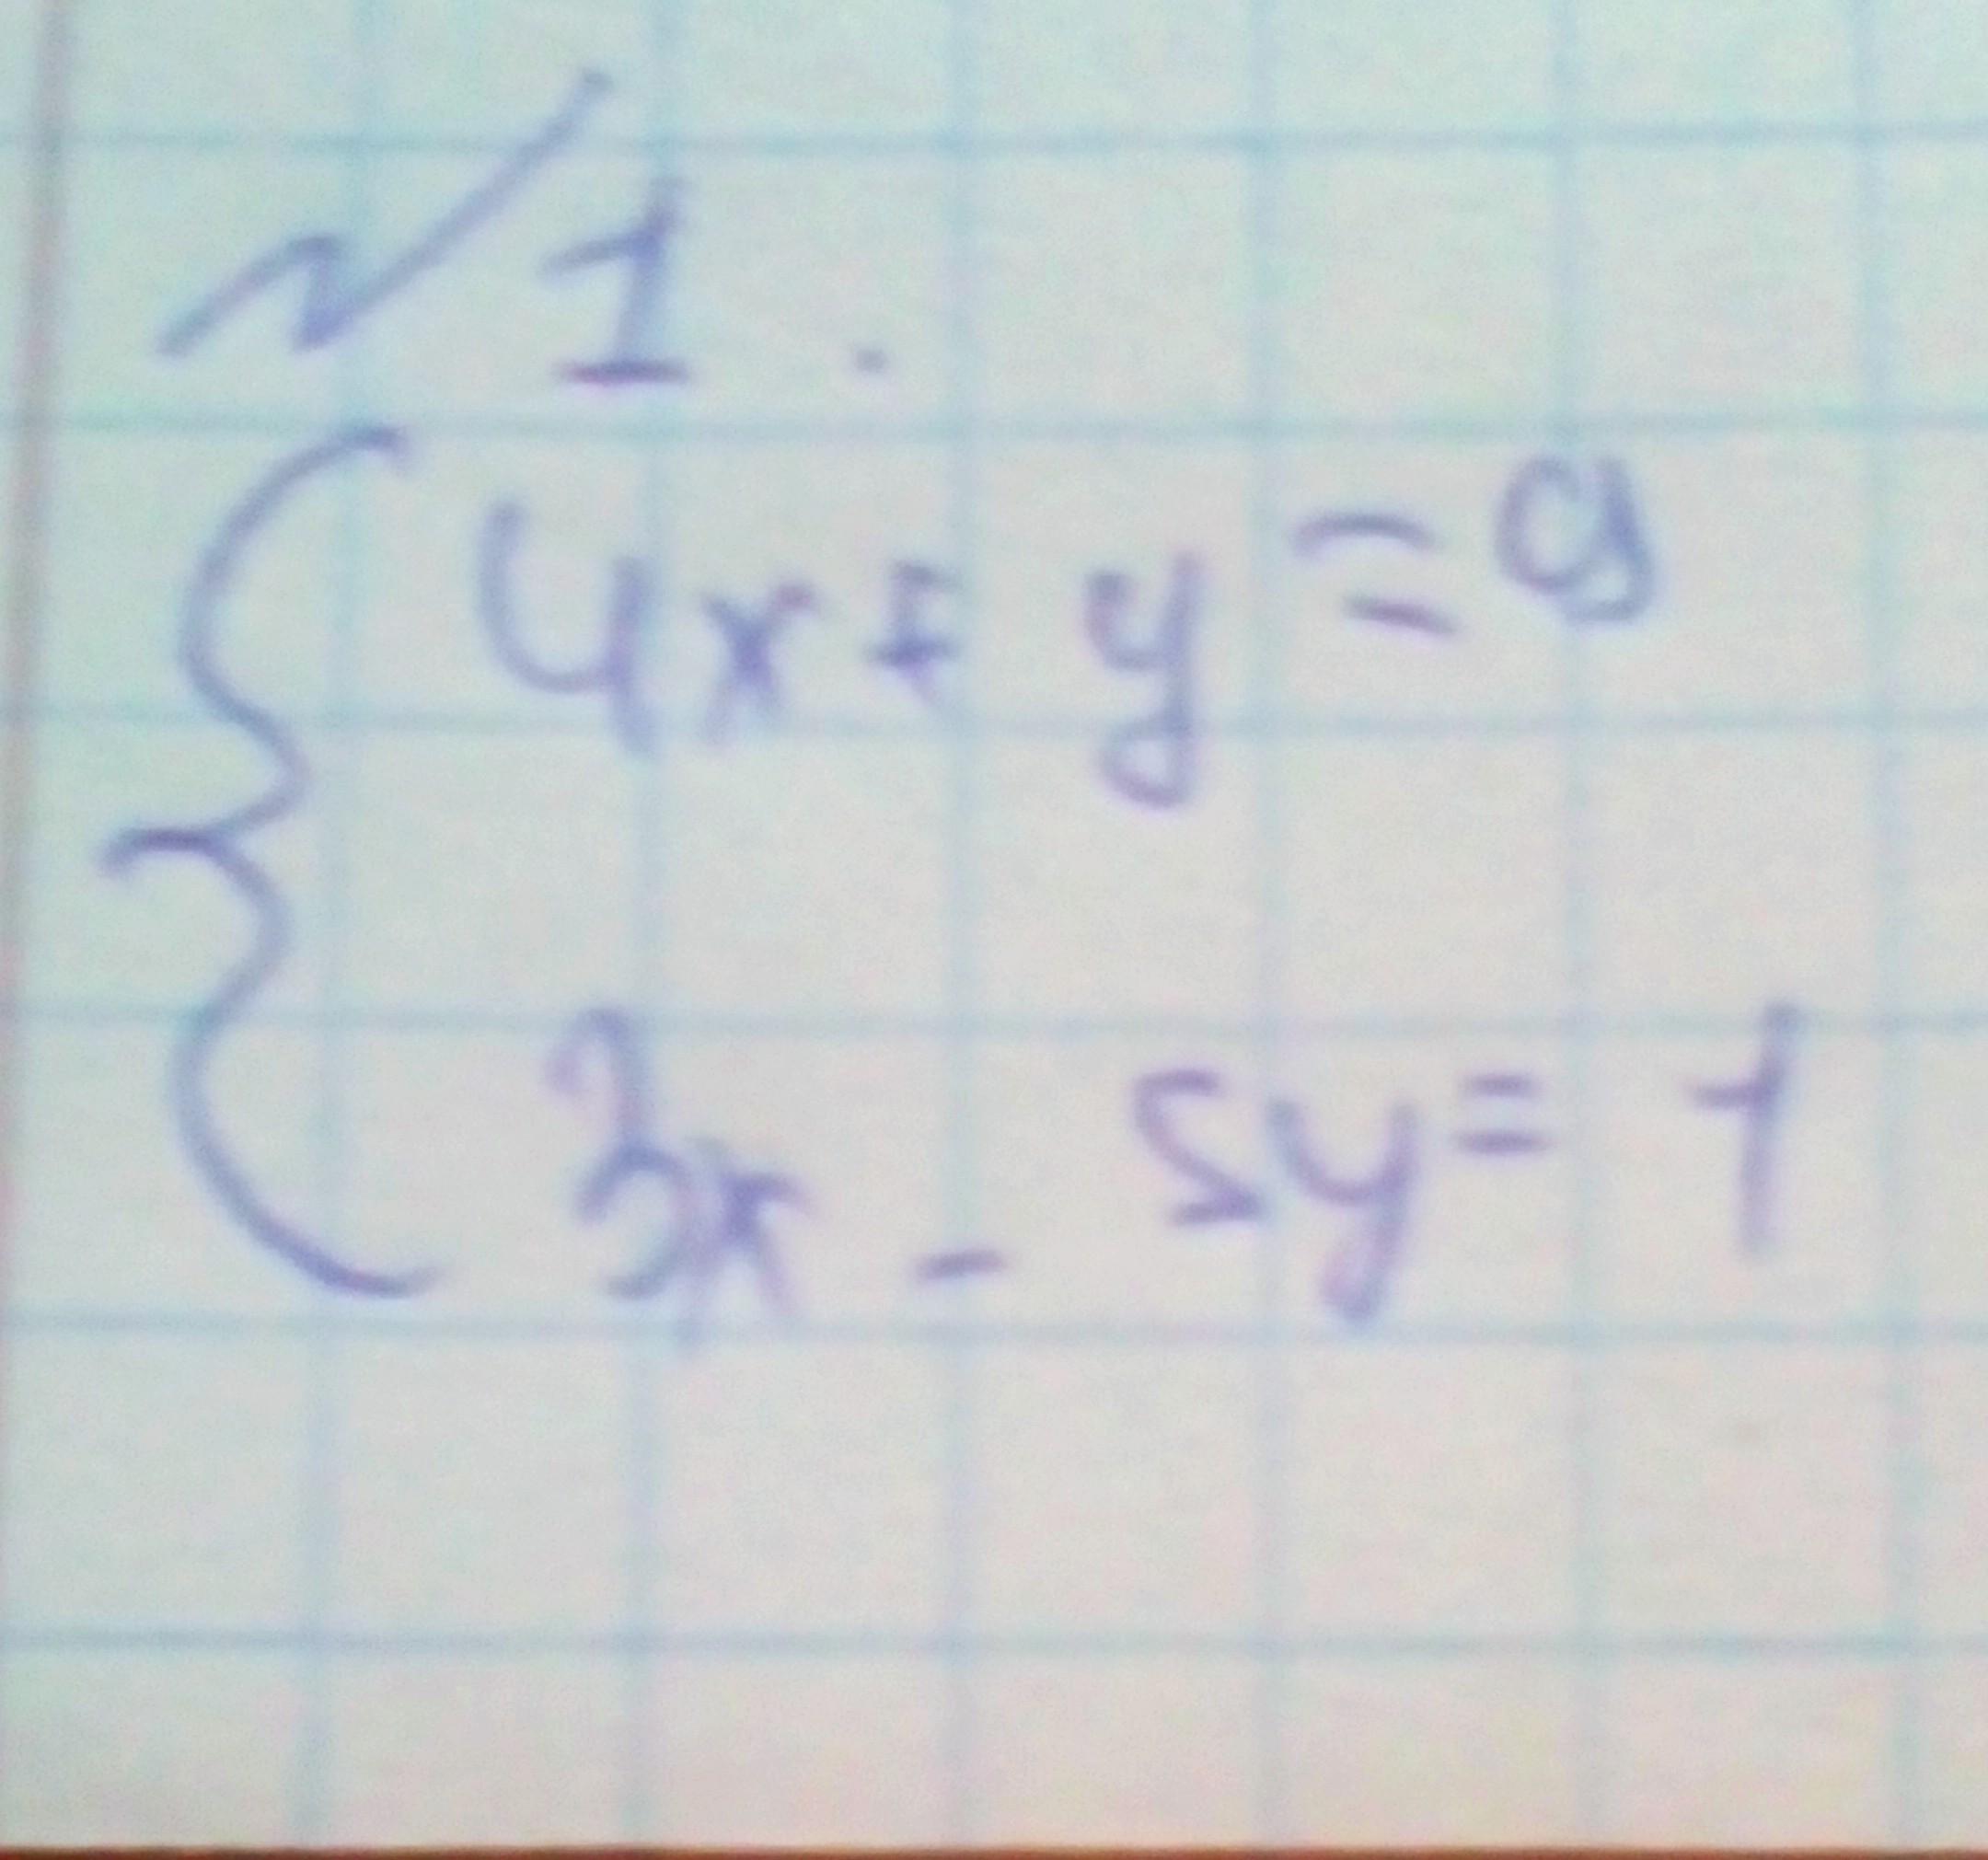 №1.
4x+y=9
3x-5y=1